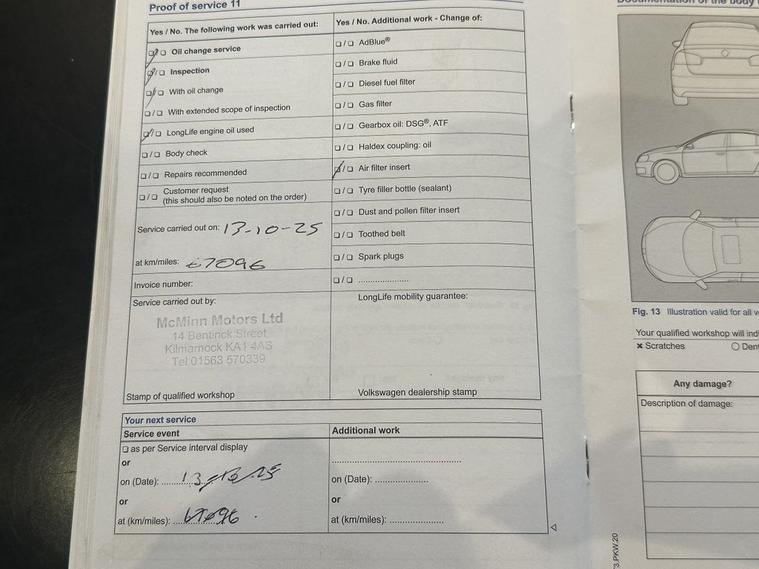 Proof of service 11
Yes / No. The following work was carried out:
Oil change service
Inspection
With oil change
With extended scope of inspection
LongLife engine oil used
Body check
Repairs recommended
Customer request
(this should also be noted on the order)
Service carried out on: 13-10-25
at km/miles: 67096
Invoice number:
Service carried out by:
McMinn Motors Ltd
14 Bentinck Street
Kilmarnock KA1 4AS
Tel:01563 570339
Stamp of qualified workshop
Yes / No. Additional work - Change of:
AdBlue®
Brake fluid
Diesel fuel filter
Gas filter
Gearbox oil: DSG®, ATF
Haldex coupling: oil
Air filter insert
Tyre filler bottle (sealant)
Dust and pollen filter insert
Toothed belt
Spark plugs
LongLife mobility guarantee:
Volkswagen dealership stamp
Your next service
Service event
as per Service interval display
or
on (Date):
or
at (km/miles):
Additional work
on (Date):
or
at (km/miles):
Fig. 13 Illustration valid for all
Your qualified workshop will
Scratches
Any damage?
Description of damage: